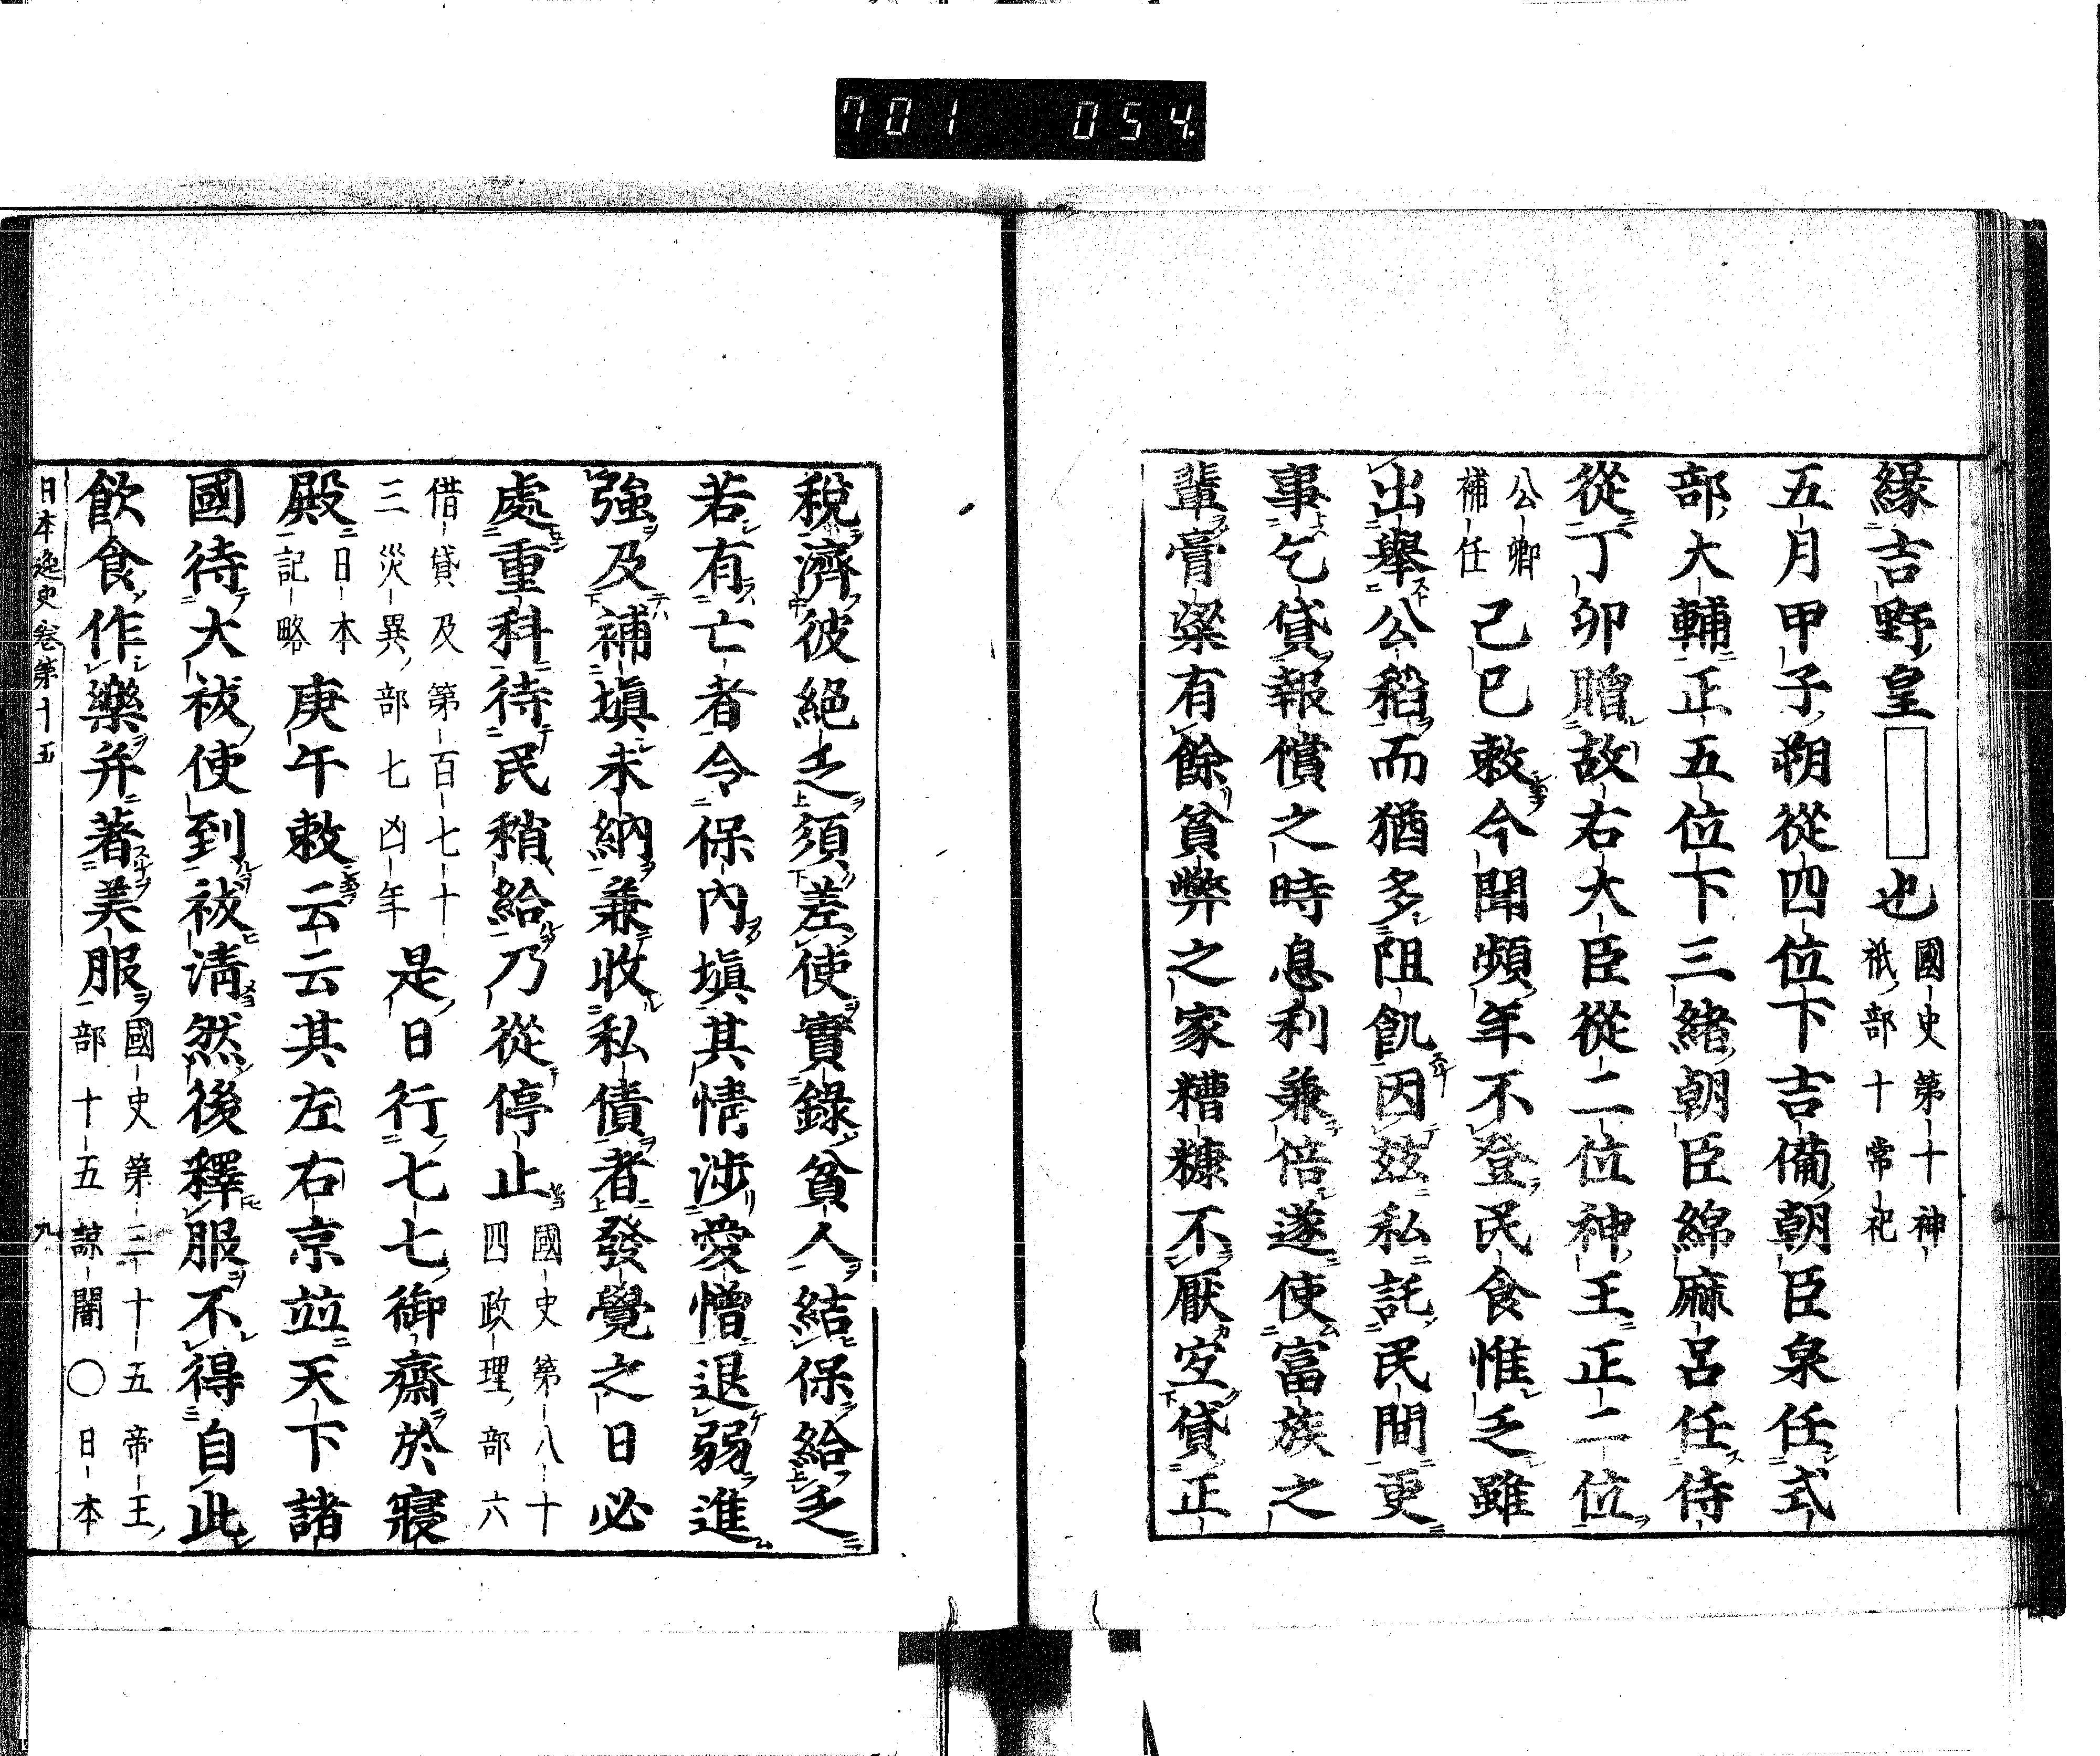 701 054
緣吉野皇也國史第十神
祇部十常祀
五月甲子朔從四位下吉備朝臣泉任式
部大輔正五位下三緒朝臣綿麻呂任侍
從丁卯贈故右大臣從二位神王正二位
公卿
補任己巳敕今聞頻年不登民食惟乏雖
出舉公稻而猶多阻飢因茲私託民間更
事乞貸報償之時息利兼倍遂使富族之
輩膏粱有餘貧弊之家糟糠不厭宜貸正
稅濟彼絕乏須差使實錄貧人結保給乏
若有亡者令保內塡其情涉愛憎退弱進
強及補塡未納兼收私債者發覺之日必
處重科待民稍給乃從停止國史第八十
四政理部六
借貸及第百七十
三災異部七凶年是日行七七御齋於寢
殿日本
記略庚午敕云云其左右京竝天下諸
國待大祓使到祓淸然後釋服不得自此
飮食作樂并著美服國史第三十五帝王
部十五諒闇○日本
日本逸史卷第十五 九